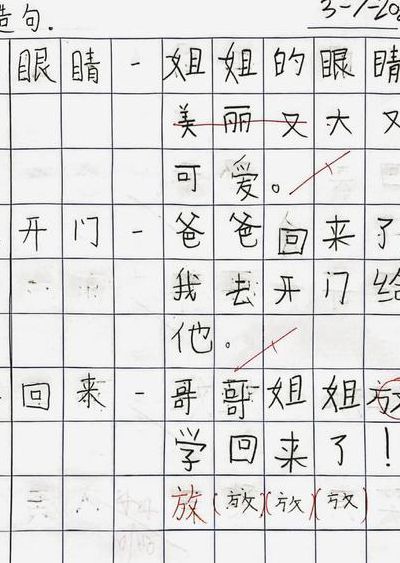 造句.
3-7-20
眼睛 - 姐姐的眼睛
美丽又大又
可爱。
开门 - 爸爸回来了
我去开门给
他。
回来 - 哥哥姐姐放
学回来了!
放(放)(放)(放)